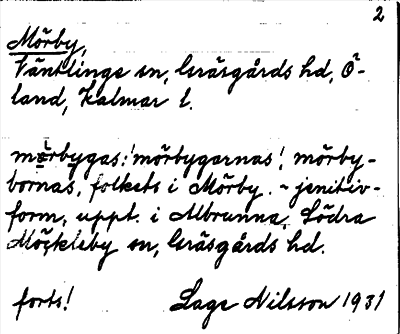 2
Mörby,
Ventlinge sn, Gräsgårds hd, Ö-
land, Kalmar l.
mörbygas! 'mörbygarnas', mörby-
bornas, folkets i Mörby. - jenitiv-
form, uppt. i Albrunna, Södra
Möckleby sn, Gräsgårds hd.
forts! Lage Nilsson 1931